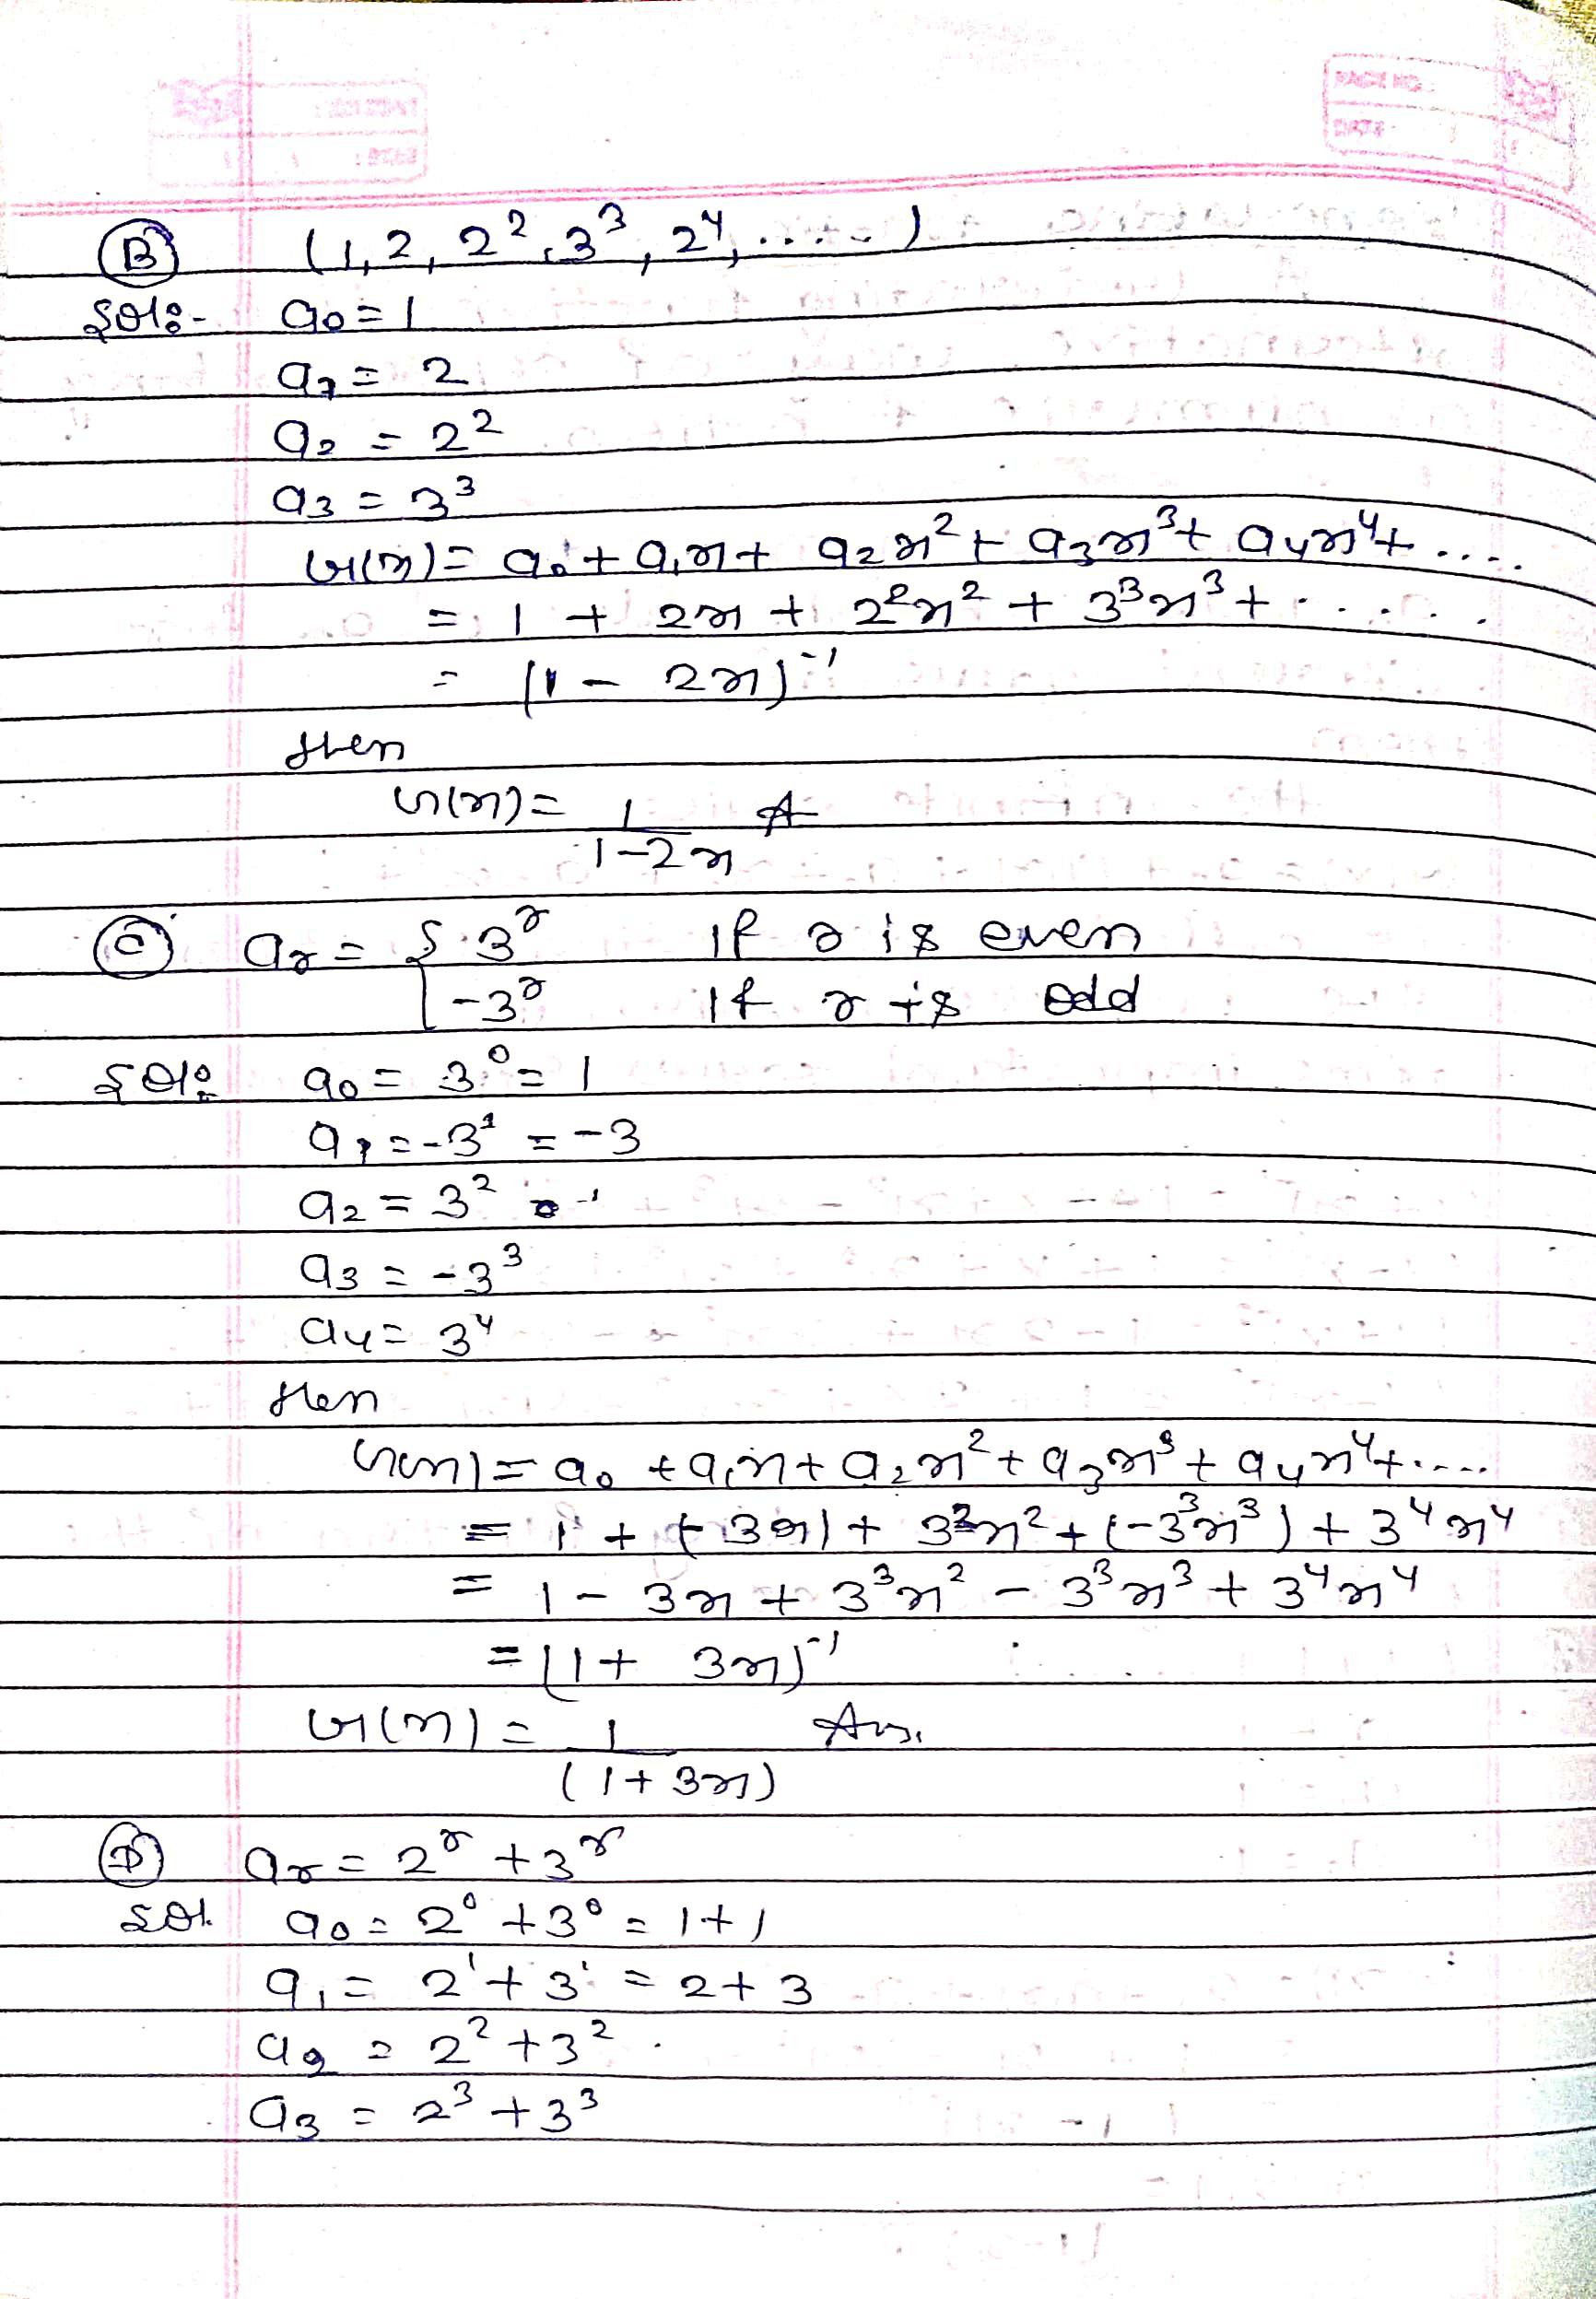 PAGE NO.
DATE
(B) (1, 2, 2², 3³, 2⁴, .....)
Sol:- a₀ = 1
a₁ = 2
a₂ = 2²
a₃ = 3³
G(x) = a₀ + a₁x + a₂x² + a₃x³ + a₄x⁴ + ....
= 1 + 2x + 2²x² + 3³x³ + ......
= (1 - 2x)⁻¹
then
G(x) = 1/(1-2x) A
(C) aᵣ = { 3ʳ If r is even
{ -3ʳ If r is odd
Sol: a₀ = 3⁰ = 1
a₁ = -3¹ = -3
a₂ = 3²
a₃ = -3³
a₄ = 3⁴
then
G(x) = a₀ + a₁x + a₂x² + a₃x³ + a₄x⁴ + ....
= 1 + (-3x) + 3²x² + (-3³x³) + 3⁴x⁴
= 1 - 3x + 3³x² - 3³x³ + 3⁴x⁴
= (1 + 3x)⁻¹
G(x) = 1/(1+3x) Ans.
(D) aᵣ = 2ʳ + 3ʳ
Sol. a₀ = 2⁰ + 3⁰ = 1+1
a₁ = 2¹ + 3¹ = 2 + 3
a₂ = 2² + 3²
a₃ = 2³ + 3³